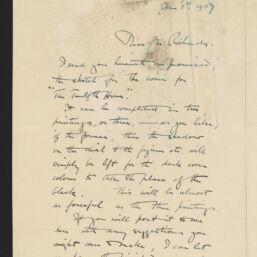 Jan 1st 1907
Dear Mr Richards.
I send you herewith as promised,
the sketch for the cover for
"The Twelfth Hour."
It can be completed in two
printings, or three, — as you like;
if the former, then the shadow
on the dial & the figures etc will
simply be left for the dark cover
colour to take the place of the
black. This will be almost
as forceful as the three printings.
If you will post it to me
here with any suggestions you
might care to make, I can let